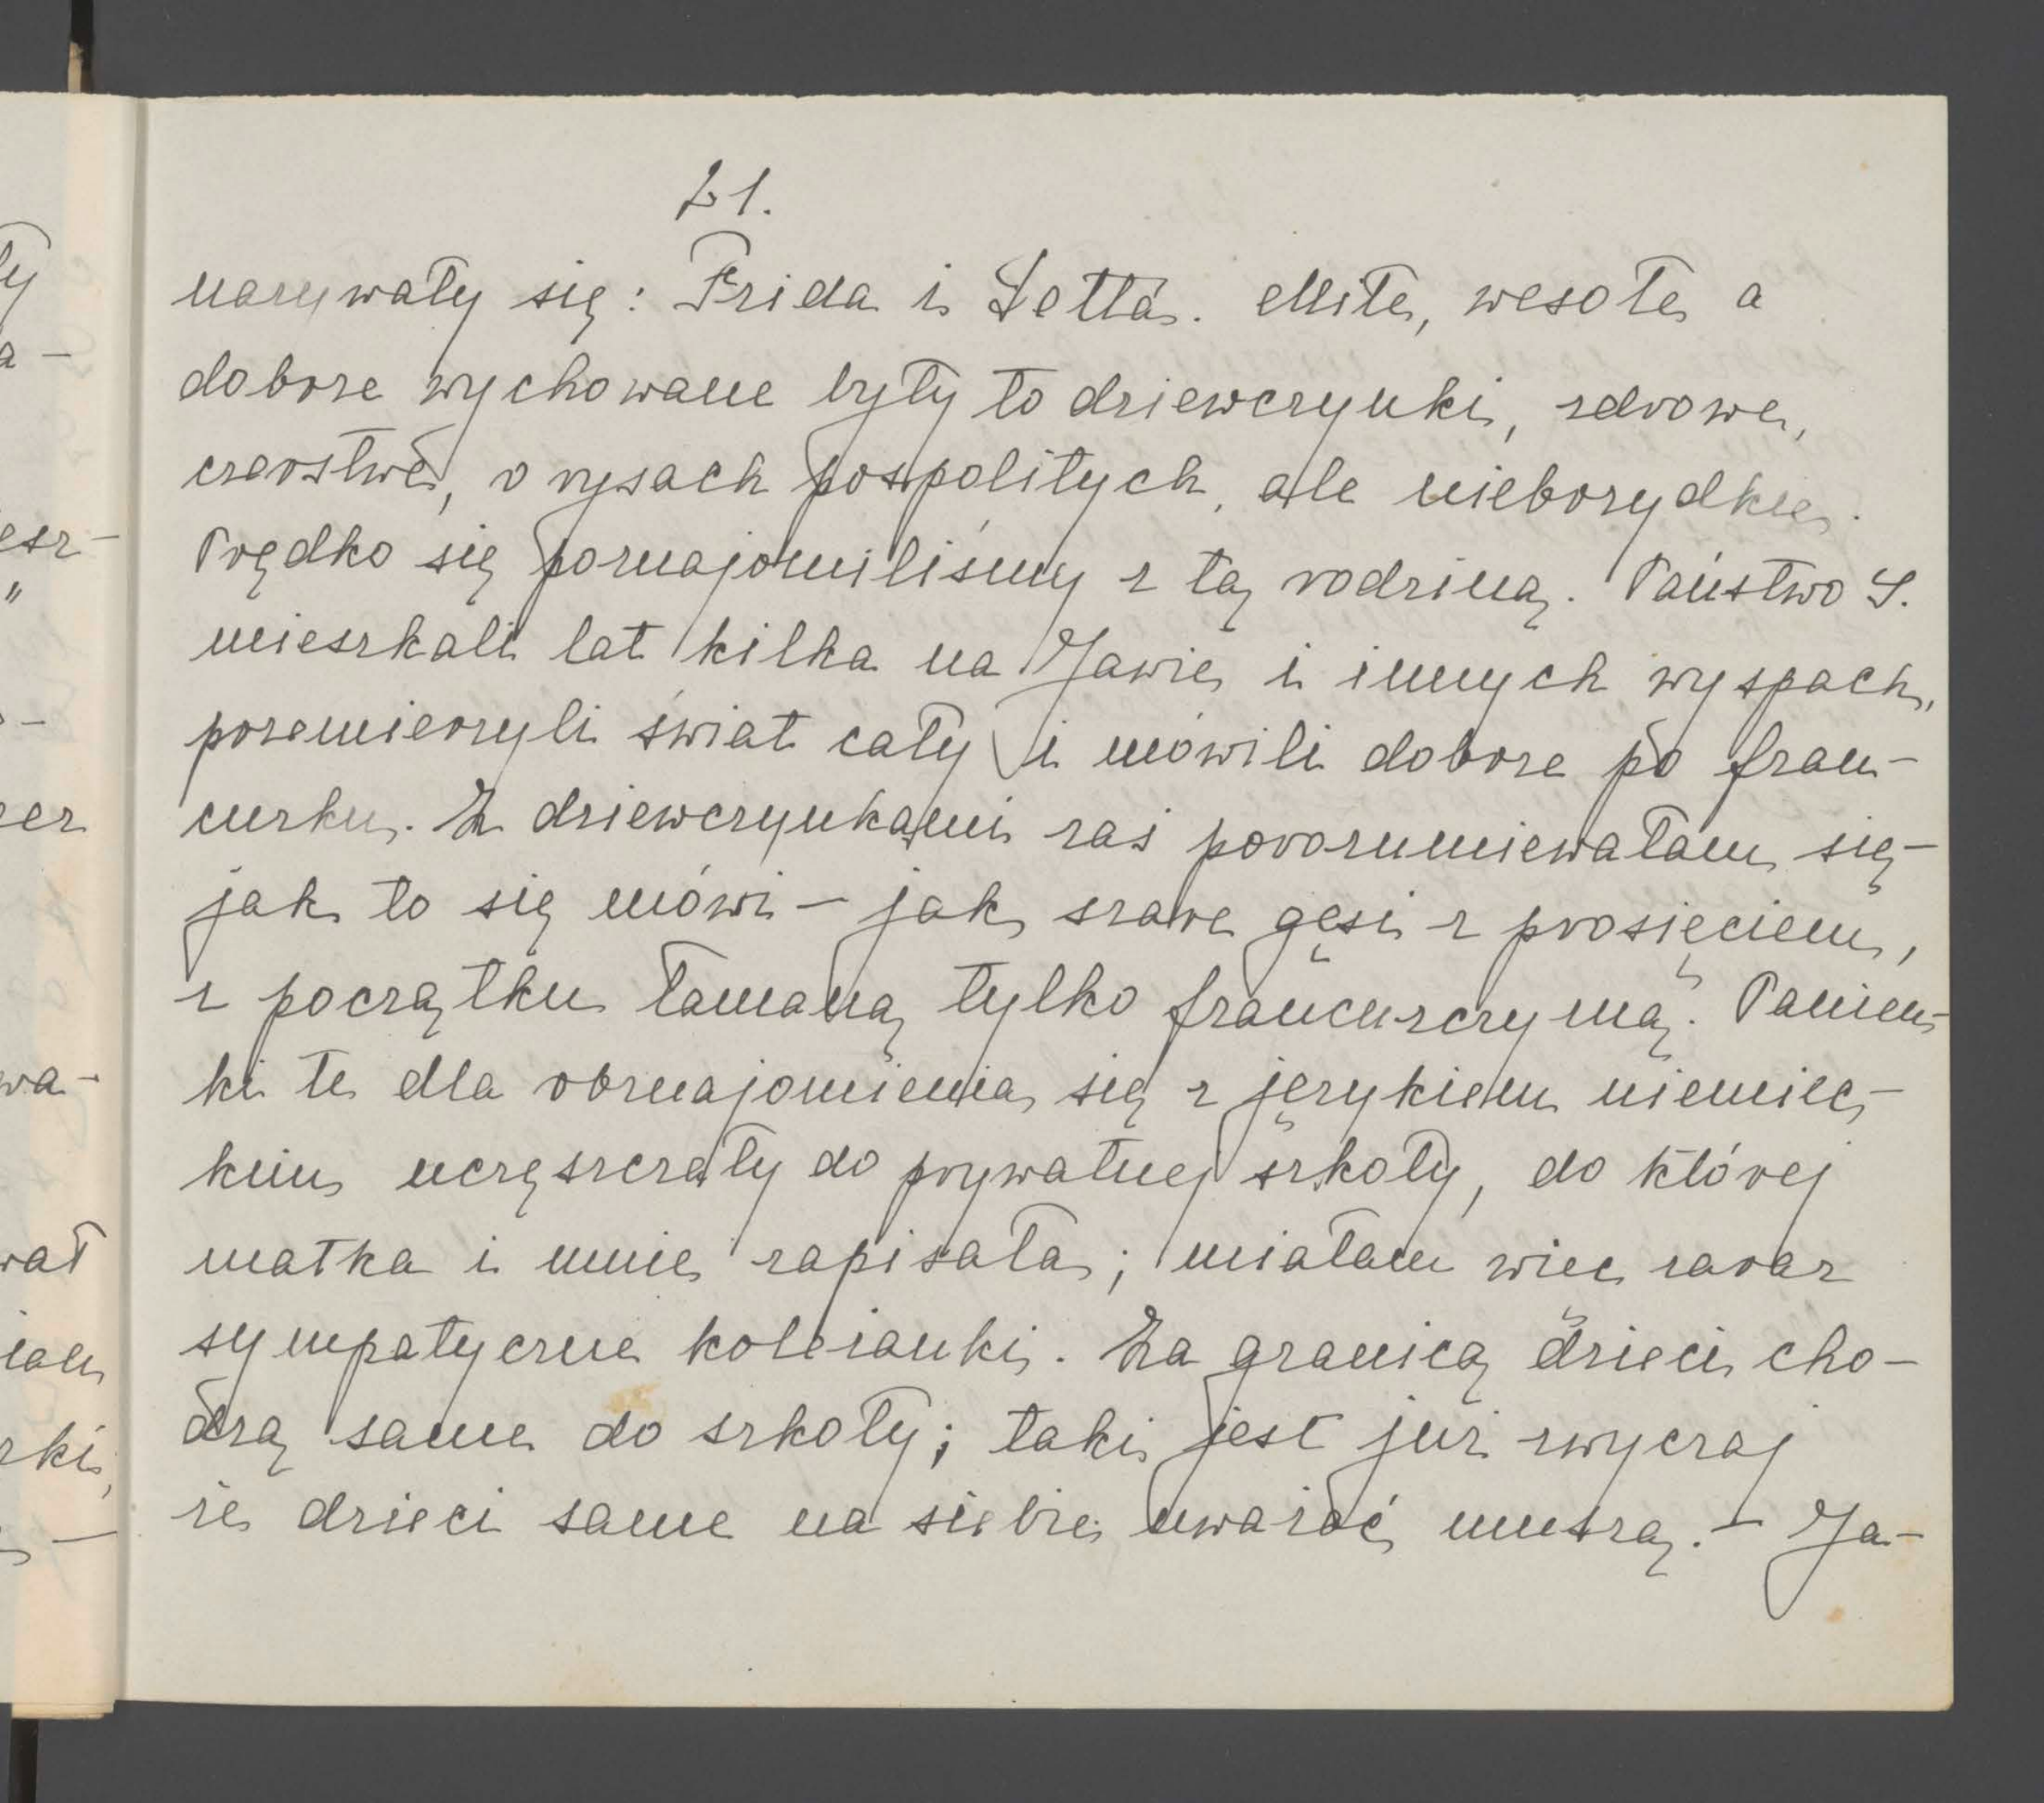 21.
nazywały się: Frida i Lotta. Miłe, wesołe a
dobrze wychowane były to dziewczynki, zdrowe,
czerstwe, o rysach pospolitych, ale niebrzydkie.
Prędko się poznajomiliśmy z tą rodziną. Państwo S.
mieszkali lat kilka na Jawie i innych wyspach,
przemierzyli świat cały i mówili dobrze po fran-
cuzku. Z dziewczynkami zaś porozumiewałam się-
jak to się mówi – jak szare gęsi z prosięciem,
z początku łamaną tylko francuzczyzną. Panien-
ki te dla obznajomienia się z językiem niemiec-
kim uczęszczały do prywatnej szkoły, do której
matka i mnie zapisała; miałam więc zaraz
sympatyczne koleżanki. Za granicą dzieci cho-
dzą same do szkoły; taki jest już zwyczaj
że dzieci same na siebie uważać muszą. – Ja-
ty
a-
esz-
"
ez
wa-
wał